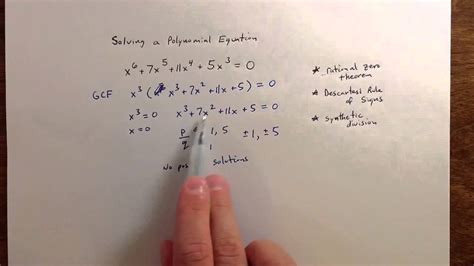 Solving a Polynomial Equation
x⁶ + 7x⁵ + 11x⁴ + 5x³ = 0
GCF x³ ( x³ + 7x² + 11x + 5 ) = 0
x³ = 0 x³ + 7x² + 11x + 5 = 0
x = 0
p/q 1, 5 ±1, ±5
1
No pos solutions
* rational zero
theorem
* Descartes Rule
of Signs
* synthetic
division